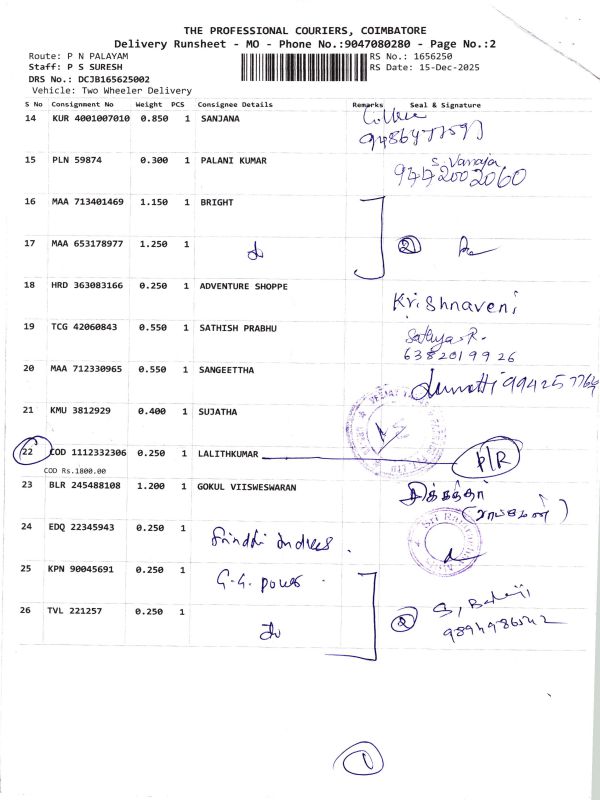 THE PROFESSIONAL COURIERS, COIMBATORE
Delivery Runsheet - MO - Phone No.:9047080280 - Page No.:2
Route: P N PALAYAM
RS No.: 1656250
Staff: P S SURESH
RS Date: 15-Dec-2025
DRS No.: DCJB165625002
Vehicle: Two Wheeler Delivery
S No Consignment No Weight PCS Consignee Details Remarks Seal & Signature
14 KUR 4001007010 0.850 1 SANJANA
15 PLN 59874 0.300 1 PALANI KUMAR S. Vanaja
9442002060
16 MAA 713401469 1.150 1 BRIGHT
17 MAA 653178977 1.250 1 2
18 HRD 363083166 0.250 1 ADVENTURE SHOPPE
Krishnaveni
19 TCG 42060843 0.550 1 SATHISH PRABHU Sathya. R.
6382019926
20 MAA 712330965 0.550 1 SANGEETTHA
21 KMU 3812929 0.400 1 SUJATHA
22 COD 1112332306 0.250 1 LALITHKUMAR P/R
COD Rs.1800.00
23 BLR 245488108 1.200 1 GOKUL VIISWESWARAN
24 EDQ 22345943 0.250 1
25 KPN 90045691 0.250 1 G.G. power
26 TVL 221257 0.250 1 2
1